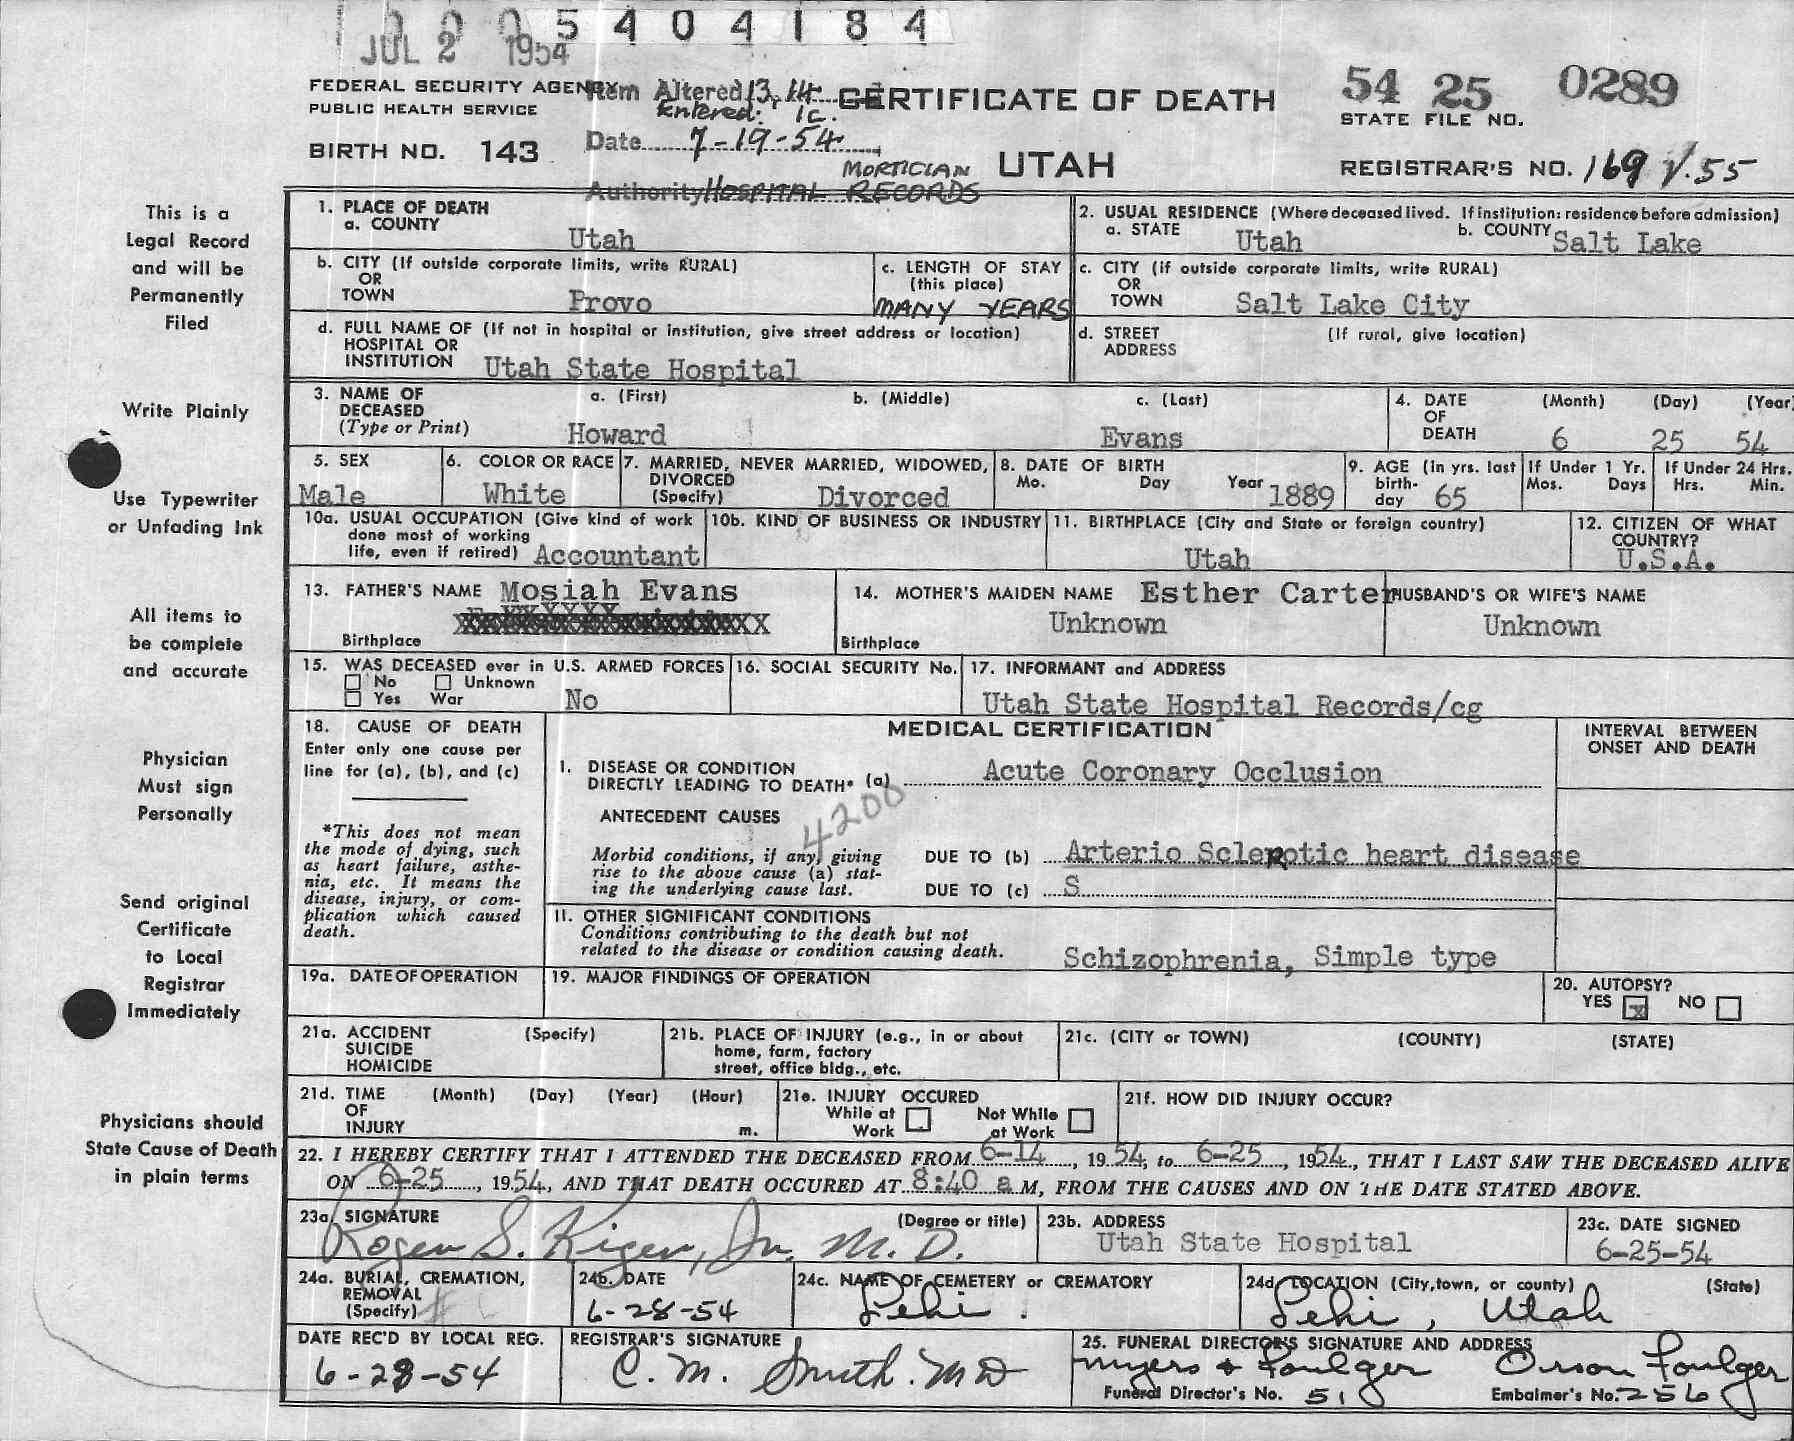 5404184
JUL 2 1954
FEDERAL SECURITY AGENCY
PUBLIC HEALTH SERVICE
Item Altered 13, 14
Entered: 1c.
Date 7-19-54
MORTICIAN
Authority HOSPITAL RECORDS
BIRTH NO. 143
CERTIFICATE OF DEATH
UTAH
54 25 0289
STATE FILE NO.
REGISTRAR'S NO. 169 V.55
This is a
Legal Record
and will be
Permanently
Filed
Write Plainly
Use Typewriter
or Unfading Ink
All items to
be complete
and accurate
Physician
Must sign
Personally
Send original
Certificate
to Local
Registrar
Immediately
Physicians should
State Cause of Death
in plain terms
1. PLACE OF DEATH
a. COUNTY
Utah
2. USUAL RESIDENCE (Where deceased lived. If institution: residence before admission)
a. STATE Utah b. COUNTY Salt Lake
b. CITY (If outside corporate limits, write RURAL)
OR
TOWN Provo
c. LENGTH OF STAY
(this place)
MANY YEARS
c. CITY (if outside corporate limits, write RURAL)
OR
TOWN Salt Lake City
d. FULL NAME OF (If not in hospital or institution, give street address or location)
HOSPITAL OR
INSTITUTION Utah State Hospital
d. STREET (If rural, give location)
ADDRESS
3. NAME OF
DECEASED
(Type or Print)
a. (First) b. (Middle) c. (Last)
Howard Evans
4. DATE (Month) (Day) (Year)
OF
DEATH 6 25 54
5. SEX
Male
6. COLOR OR RACE
White
7. MARRIED, NEVER MARRIED, WIDOWED,
DIVORCED
(Specify) Divorced
8. DATE OF BIRTH
Mo. Day Year 1889
9. AGE (in yrs. last
birth-
day 65
If Under 1 Yr.
Mos. Days
If Under 24 Hrs.
Hrs. Min.
10a. USUAL OCCUPATION (Give kind of work
done most of working
life, even if retired) Accountant
10b. KIND OF BUSINESS OR INDUSTRY
11. BIRTHPLACE (City and State or foreign country)
Utah
12. CITIZEN OF WHAT
COUNTRY?
U.S.A.
13. FATHER'S NAME Mosiah Evans
Birthplace
14. MOTHER'S MAIDEN NAME Esther Carter
Unknown
Birthplace
HUSBAND'S OR WIFE'S NAME
Unknown
15. WAS DECEASED ever in U.S. ARMED FORCES
No Unknown
Yes War No
16. SOCIAL SECURITY No.
17. INFORMANT and ADDRESS
Utah State Hospital Records/cg
18. CAUSE OF DEATH
Enter only one cause per
line for (a), (b), and (c)
*This does not mean
the mode of dying, such
as heart failure, asthe-
nia, etc. It means the
disease, injury, or com-
plication which caused
death.
MEDICAL CERTIFICATION
INTERVAL BETWEEN
ONSET AND DEATH
I. DISEASE OR CONDITION
DIRECTLY LEADING TO DEATH* (a) Acute Coronary Occlusion
ANTECEDENT CAUSES
4200
Morbid conditions, if any, giving
rise to the above cause (a) stat-
ing the underlying cause last.
DUE TO (b) Arterio Sclerotic heart disease
DUE TO (c) S
II. OTHER SIGNIFICANT CONDITIONS
Conditions contributing to the death but not
related to the disease or condition causing death.
Schizophrenia, Simple type
19a. DATE OF OPERATION
19. MAJOR FINDINGS OF OPERATION
20. AUTOPSY?
YES x NO
21a. ACCIDENT (Specify)
SUICIDE
HOMICIDE
21b. PLACE OF INJURY (e.g., in or about
home, farm, factory
street, office bldg., etc.
21c. (CITY or TOWN) (COUNTY) (STATE)
21d. TIME (Month) (Day) (Year) (Hour)
OF
INJURY m.
21e. INJURY OCCURED
While at Not While
Work at Work
21f. HOW DID INJURY OCCUR?
22. I HEREBY CERTIFY THAT I ATTENDED THE DECEASED FROM 6-14, 1954, to 6-25, 1954, THAT I LAST SAW THE DECEASED ALIVE
ON 6-25, 1954, AND THAT DEATH OCCURED AT 8:40 a M, FROM THE CAUSES AND ON THE DATE STATED ABOVE.
23a. SIGNATURE (Degree or title)
Roger S. Kiger, Jr. M.D.
23b. ADDRESS
Utah State Hospital
23c. DATE SIGNED
6-25-54
24a. BURIAL, CREMATION,
REMOVAL
(Specify)
24b. DATE
6-28-54
24c. NAME OF CEMETERY or CREMATORY
Lehi.
24d. LOCATION (City, town, or county) (State)
Lehi, Utah
DATE REC'D BY LOCAL REG.
6-28-54
REGISTRAR'S SIGNATURE
C. M. Smith. MD
25. FUNERAL DIRECTOR'S SIGNATURE AND ADDRESS
Myers & Foulger Orson Foulger
Funeral Director's No. 51 Embalmer's No. 256